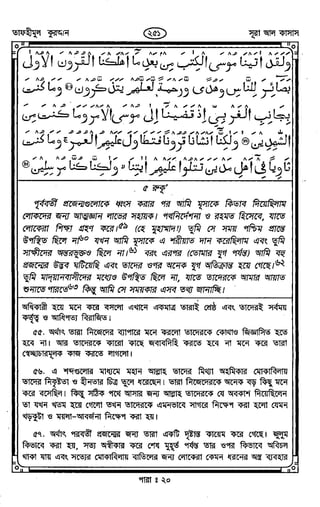 তাফহীমুল কুরআন
২৫১
সূরা আল কাসাস
وَلَقَدْ آتَيْنَا مُوسَى الْكِتَابَ مِنْ بَعْدِ مَا أَهْلَكْنَا الْقُرُونَ الْأُولَى
بَصَائِرَ لِلنَّاسِ وَهُدًى وَرَحْمَةً لَعَلَّهُمْ يَتَذَكَّرُونَ ۝ وَمَا كُنْتَ
بِجَانِبِ الْغَرْبِيِّ إِذْ قَضَيْنَا إِلَى مُوسَى الْأَمْرَ وَمَا كُنْتَ مِنَ
الشَّاهِدِينَ ۝ وَلَكِنَّا أَنْشَأْنَا قُرُونًا فَتَطَاوَلَ عَلَيْهِمُ الْعُمُرُ وَمَا كُنْتَ
ثَاوِيًا فِي أَهْلِ مَدْيَنَ تَتْلُو عَلَيْهِمْ آيَاتِنَا وَلَكِنَّا كُنَّا مُرْسِلِينَ ۝
৫ রুকূ'
পূর্ববর্তী প্রজন্মগুলোকে ধ্বংস করার পর আমি মূসাকে কিতাব দিয়েছিলাম
লোকদের জন্য আত্মজ্ঞান লাভের সহায়ক। পথনির্দেশনা ও রহমত হিসেবে, যাতে
লোকেরা শিক্ষা গ্রহণ করে।৫৯ (হে মুহাম্মাদ!) তুমি সে সময় পশ্চিম প্রান্তে
উপস্থিত ছিলে না৬০ যখন আমি মূসাকে এ শরীয়াত দান করেছিলাম এবং তুমি
সাক্ষীদের অন্তরভুক্তও ছিলে না।৬১ বরং এরপর (তোমার যুগ পর্যন্ত) আমি বহু
প্রজন্মের উদ্ভব ঘটিয়েছি এবং তাদের ওপর অনেক যুগ অতিক্রান্ত হয়ে গেছে।৬২
তুমি মাদয়ানবাসীদের মধ্যেও উপস্থিত ছিলে না, যাতে তাদেরকে আমার আয়াত
শুনাতে পারতে৬৩ কিন্তু আমি সে সময়কার এসব তথ্য জানাচ্ছি।
অধিকারী হয়ে মনে করে বসলো এখানে একমাত্র তারাই শ্রেষ্ঠ এবং তাদেরই সর্বময়
কর্তৃত্ব ও আধিপত্য বিরাজিত।
৫৫. অর্থাৎ তারা নিজেদের ব্যাপারে মনে করলো তাদেরকে কোথাও জিজ্ঞাসিত হতে
হবে না। আর তাদেরকে কারো কাছে জবাবদিহি করতে হবে না মনে করে তারা
স্বেচ্ছাচারমূলক কাজ করতে লাগলো।
৫৬. এ শব্দগুলোর মাধ্যমে মহান আল্লাহ তাদের মিথ্যা অহমিকার মোকাবিলায়
তাদের নিকৃষ্টতা ও হীনতার চিত্র তুলে ধরেছেন। তারা নিজেদেরকে অনেক বড় কিছু মনে
করে বসেছিল। কিন্তু সঠিক পথে আসার জন্য আল্লাহ তাদেরকে যে অবকাশ দিয়েছিলেন
তা যখন খতম হয়ে গেলো তখন তাদেরকে এমনভাবে সাগরে নিক্ষেপ করা হলো যেমন
খড়কুটা ও ময়লা-আবর্জনা নিক্ষেপ করা হয়।
৫৭. অর্থাৎ পরবর্তী প্রজন্মের জন্য তারা একটি দৃষ্টান্ত কায়েম করে গেছে। জুলুম
কিভাবে করা হয়, সত্য অস্বীকার করে শেষ মুহূর্ত পর্যন্ত তার ওপর কিভাবে অবিচল
থাকা যায় এবং সত্যের মোকাবিলায় বাতিলের জন্য লোকেরা কেমন ধরনের অস্ত্র ব্যবহার
পারা : ২০